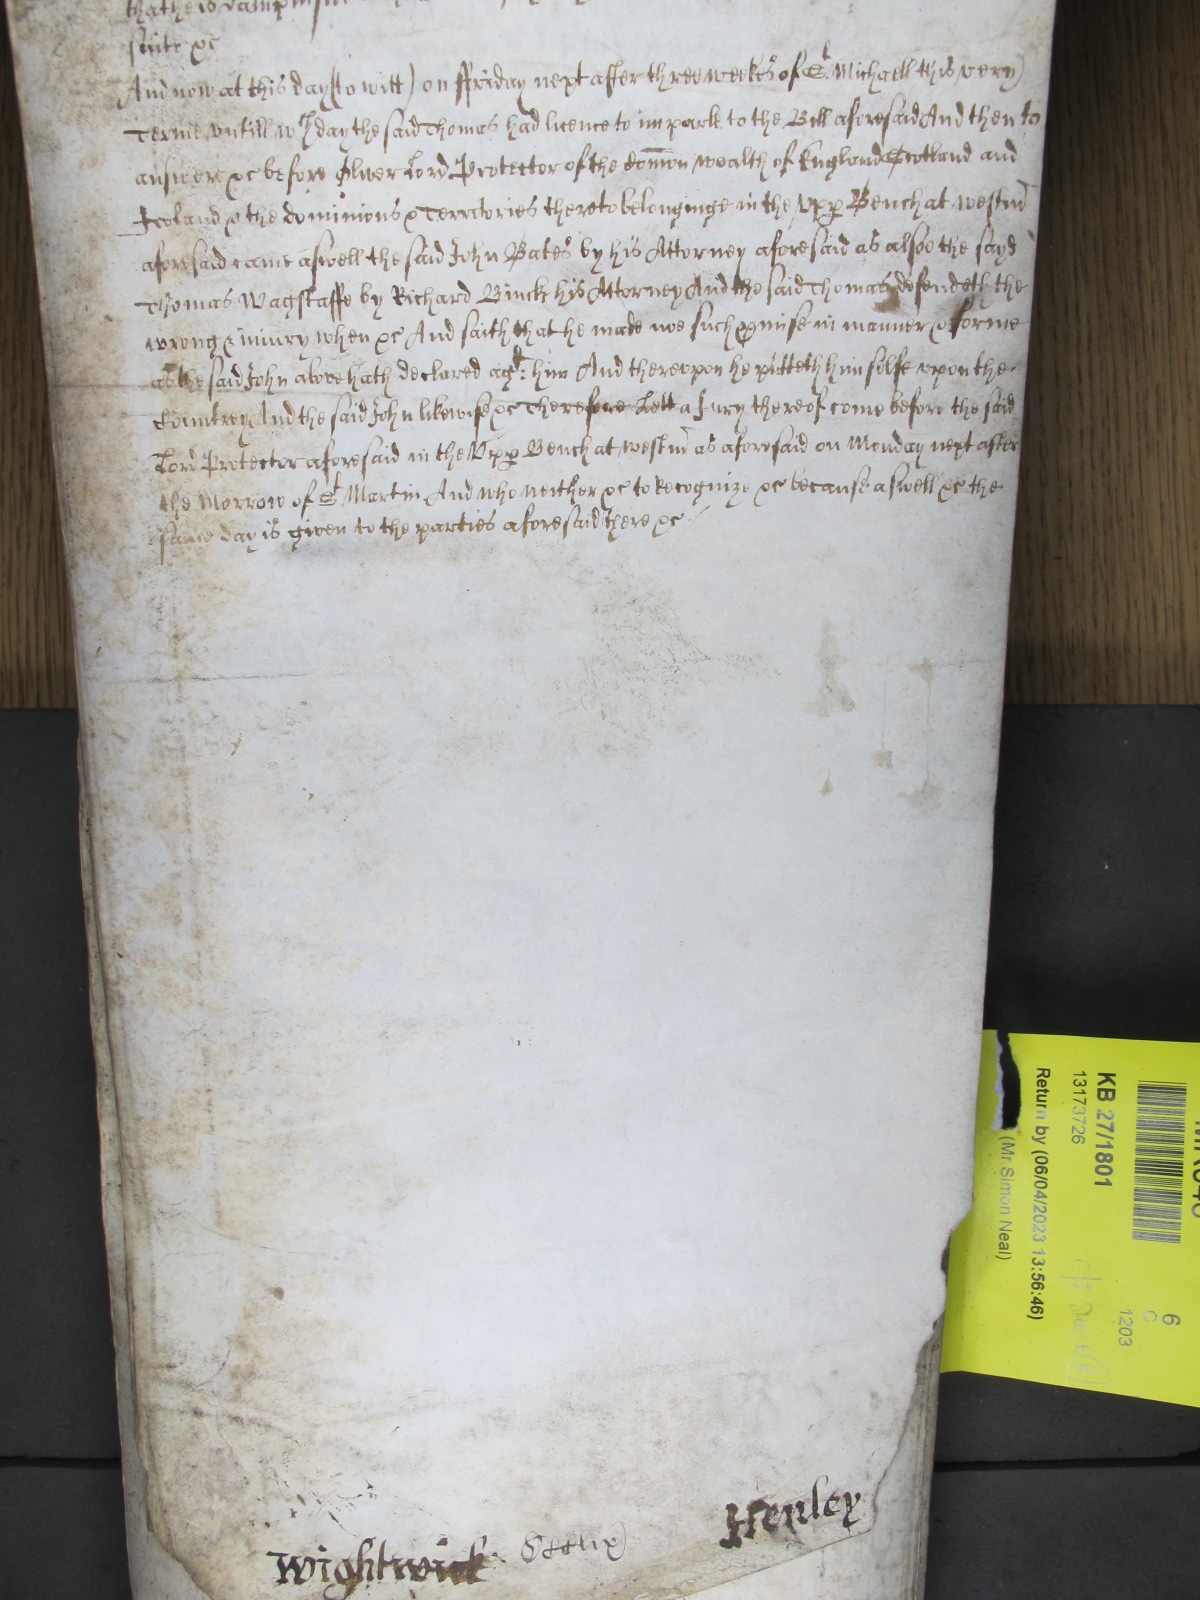 that he is
suite &c
And now at this day (to witt) on ffriday next after three weekes of St Michaell this very
Terme vntill wch day the said Thomas had licence to imparle to the Bill aforesaid And then to
answere &c before Oliver Lord Protector of the Com̄on wealth of England Scotland and
Ireland & the dominions & Territories thereto belonginge in the Vpp Bench at Westm
aforesaid came aswell the said John Bates by his Attorney aforesaid as alsoe the sayd
Thomas Wagstaffe by Richard Binck his Attorney And the said Thomas defendeth the
wrong & iniury when &c And saith that he made noe such pmise in manner & forme
as the said John above hath declared agt: him And therevpon he putteth himselfe vpon the
Countrey And the said John likewise &c Therefore Lett a Jury thereof come before the said
Lord Protector aforesaid in the Vpp Bench at Westm as aforesaid on Monday next after
the Morrow of St Martin And who neither &c to Recognize &c because aswell &c the
same day is given to the parties aforesaid there &c
Wightwick
Henley
KB 27/1801
13173726
Return by (06/04/2023 13:56:46)
(Mr Simon Neal)
6
C
1203